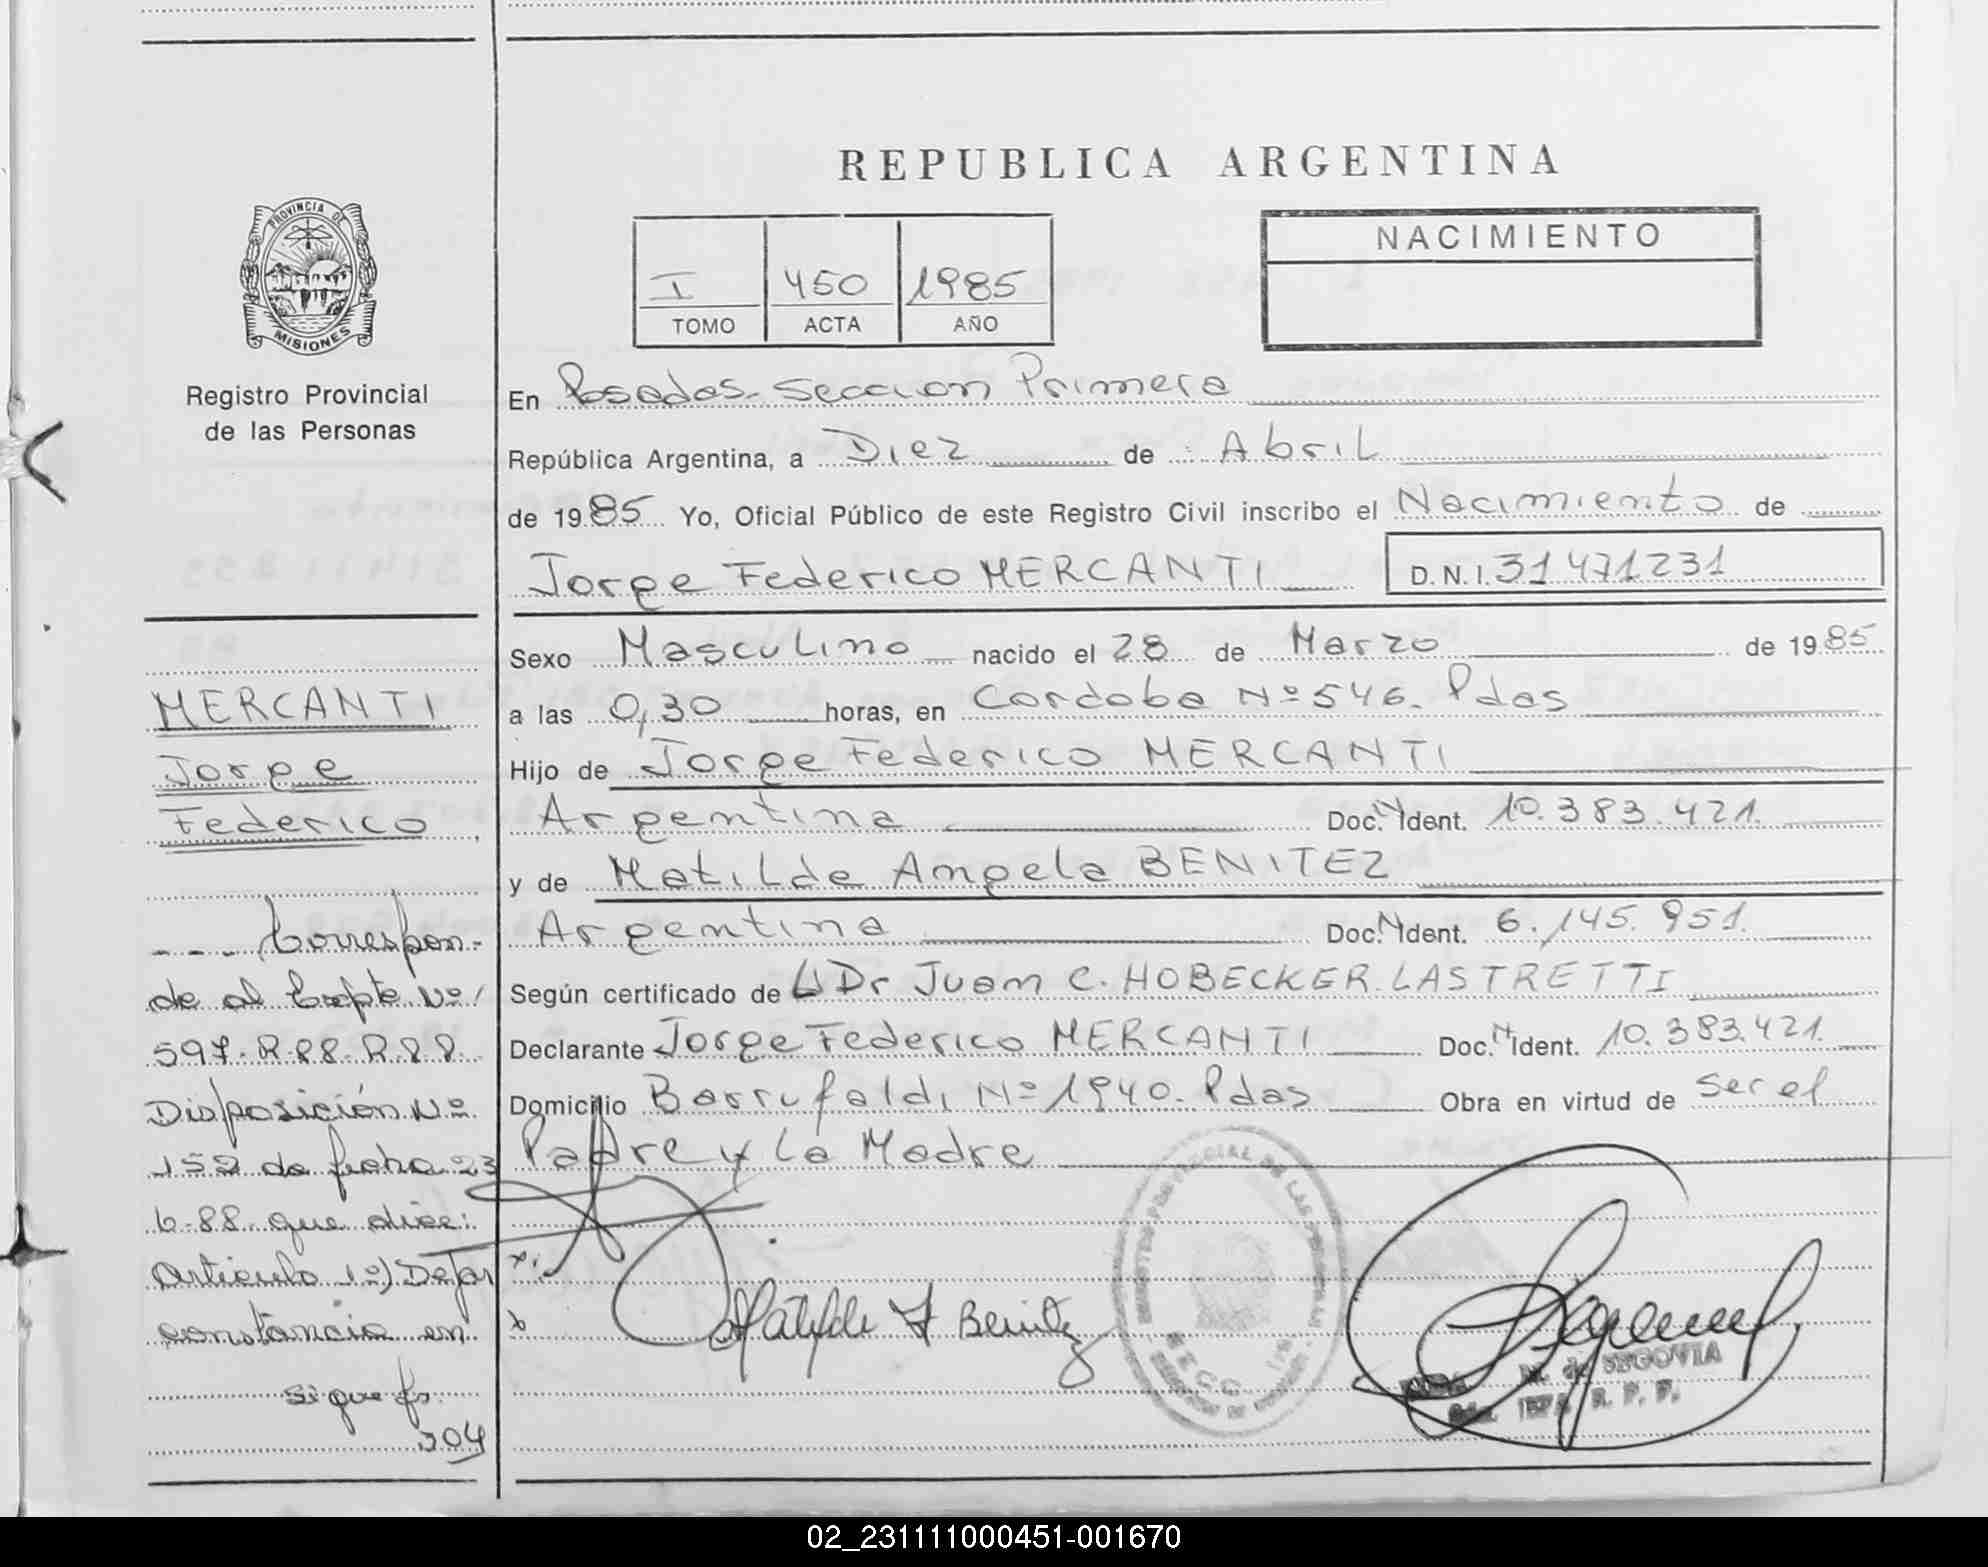 REPUBLICA ARGENTINA
PROVINCIA DE
MISIONES
Registro Provincial
de las Personas
I 450 1985
TOMO ACTA AÑO
NACIMIENTO
En Posadas. Seccion Primera
República Argentina, a Diez de Abril
de 1985 Yo, Oficial Público de este Registro Civil inscribo el Nacimiento de
Jorge Federico MERCANTI D.N.I. 31471231
Sexo Masculino nacido el 28 de Marzo de 1985
a las 0,30 horas, en Cordoba Nº 546. Pdas
Hijo de Jorge Federico MERCANTI
Argentina Doc. N Ident. 10.383.421.
y de Matilde Angela BENITEZ
Argentina Doc. N Ident. 6.145.951.
Según certificado de Dr Juan C. HOBECKER LASTRETTI
Declarante Jorge Federico MERCANTI Doc. N Ident. 10.383.421.
Domicilio Barrufaldi Nº 1940. Pdas Obra en virtud de ser el
Padre y la Madre
MERCANTI
Jorge
Federico
--- Correspon-
de al Expte Nº
597-R-88-R88
Disposición Nº
152 de fecha 23
6-88 que dice:
Artículo 1º) Dejar
constancia en
sigue fs.
204
Matilde A Benitez
M. de SEGOVIA
R. P. P.
02_231111000451-001670